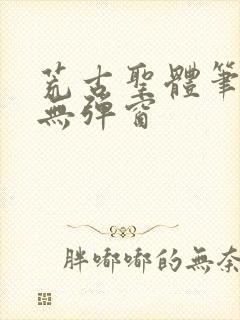 荒古聖體筆
無彈窗
胖嘟嘟的無奈